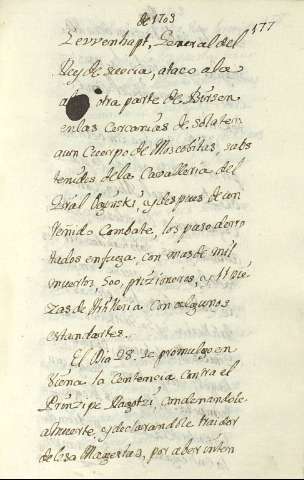 de 1703
177
Levvenhapt, General del
Rey de suecia, ataco a la
otra parte de Birsen
en las Cercanias de Salaten
a un Cuerpo de Moscobitas, sobs
tenidos de la Cavalleria del
Gral Oginski, y despues de un
Renido Combate, los puso derro
tados en fuga, con mas de mil
muertos, 500, prizioneros, y 11 pie
zas de Artilleria con algunos
estandartes.
El Dia 28. se promulgo en
Viena la Sentencia contra el
Prinzipe Ragotzi, condenandole
a muerte, y declarandole traidor
de lesa Magestas, por aber inten